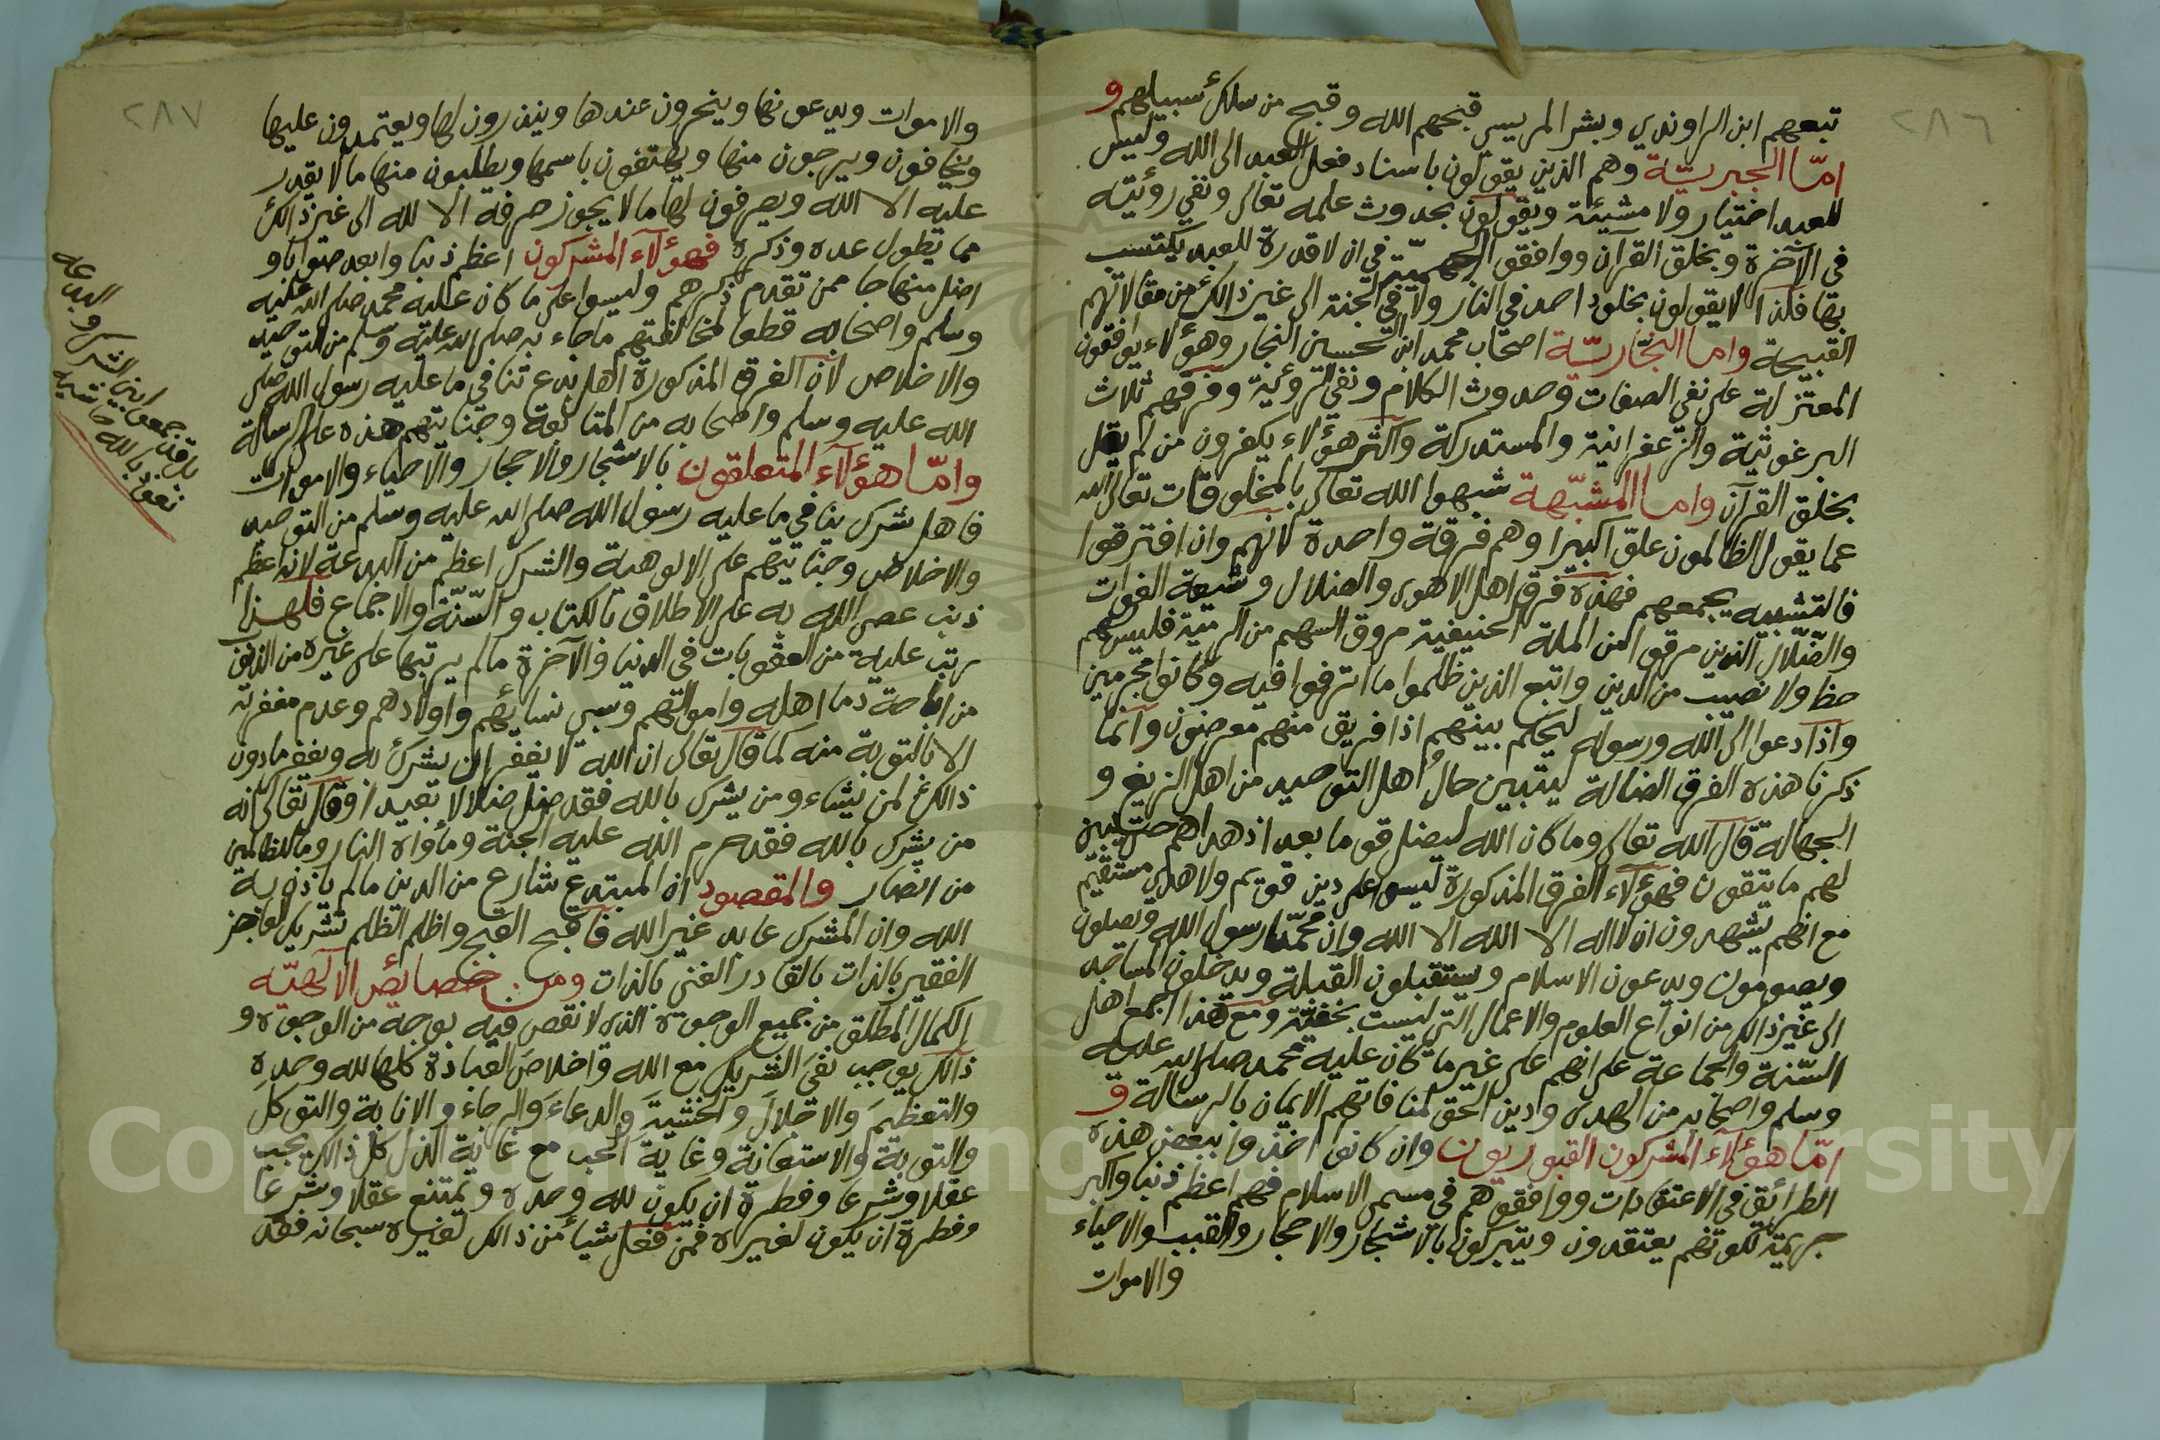 ٢٨٦
تبعهم ابن الراوندي وبشر المريسي قبحهم الله وقبح من سلك سبيلهم و
امّا الجبريّة وهم الذين يقولون باسناد فعل العبد الى الله وليس
للعبد اختيار ولا مشيئة ويقولون بحدوث علمه تعالى ونفي رؤيته
في الآخرة وبخلق القرآن ووافقوا الجهميّة في ان لا قدرة للعبد يكتسب
بها فكذا لا يقولون بخلود احد في النار ولا في الجنة الى غير ذالك من مقالاتهم
القبيحة واما النجّاريّة اصحاب محمد ابن الحسين النجار وهؤلاء يوافقون
المعتزلة على نفي الصفات وحدوث الكلام ونفي الرؤية وفرقهم ثلاث
البرغوثية والزعفرانية والمستدركة واكثر هؤلاء يكفرون من لم يقل
بخلق القرآن واما المشبّهة شبهوا الله تعالى بالمخلوقات تعالى الله
عما يقول الظالمون علوا كبيرا وهم فرقة واحدة لانهم وان افترقوا
فالتشبيه يجمعهم فهذه فرق اهل الاهوى والضلال وشيعة الغوات
والضّلّال الذين مرقوا من الملة الحنيفية مروق السهم من الرمية فليس لهم
حظ ولا نصيب من الدين واتبع الذين ظلموا ما اترفوا فيه وكانوا مجرمين
واذا دعوا الى الله ورسوله ليحكم بينهم اذا فريق منهم معرضون وانما
ذكرنا هذه الفرق الضالة ليتبين حال اهل التوحيد من اهل الزيغ و
الجهالة قال الله تعالى وما كان الله ليضل قوما بعد اذ هداهم حتى يبين
لهم ما يتقون فهؤلاء الفرق المذكورة ليسوا على دين قويم ولا هدى مستقيم
مع انهم يشهدون ان لا اله الا الله وان محمّدا رسول الله ويصلون
ويصومون ويدعون الاسلام ويستقبلون القبلة ويدخلون المساجد
الى غير ذالك من انواع العلوم والاعمال التي ليست بخفيّة ومع هذا اجمع اهل
السّنة والجماعة على انهم على غير ما كان عليه محمد صلى الله عليه
وسلم واصحابه من الهدى ودين الحق لما فاتهم الايمان بالرسالة و
امّا هؤلاء المشركون القبوريون وان كانوا اخذوا ببعض هذه
الطرائق في الاعتقادات ووافقوهم في مسمى الاسلام فهم اعظم ذنبا واكبر
جريمة لكونهم يعتقدون ويتبركون بالاشجار والاحجار والقبب والاحياء
والاموات
٢٨٧
والاموات ويدعونها وينحرون عندها وينذرون لها ويعتمدون عليها
ويخافون ويرجون منها ويهتفون باسمها ويطلبون منها ما لا يقدر
عليه الا الله ويصرفون لها ما لا يجوز صرفه الا لله الى غير ذالك
مما يطول عده وذكره فهؤلاء المشركون اعظم ذنبا وابعد صوابا و
اضل منهاجا ممن تقدم ذكرهم وليسوا على ما كان عليه محمد صلى الله عليه
وسلم واصحابه قطعا لمخالفتهم ما جاء به صلى الله عليه وسلم من التوحيد
والاخلاص لان الفرق المذكورة اهل بدع تنافي ما عليه رسول الله صلى
الله عليه وسلم واصحابه من المتابعة وجنايتهم هذه على الرسالة
وامّا هؤلاء المتعلقون بالاشجار والاحجار والاحياء والاموات
فاهل شرك ينافي ما عليه رسول الله صلى الله عليه وسلم من التوحيد
والاخلاص وجنايتهم على الالوهية والشرك اعظم من البدعة لانه اعظم
ذنب عصي الله به على الاطلاق بالكتاب والسّنّة والاجماع فلهذا
رتب عليه من العقوبات في الدنيا والآخرة ما لم يرتبها على غيره من الذنوب
من اباحة دما اهله واموالهم وسبي نسائهم واولادهم وعدم مغفرته
الا بالتوبة منه كما قال تعالى ان الله لا يغفر ان يشرك به ويغفر ما دون
ذالك لمن يشاء ومن يشرك بالله فقد ضل ضلالا بعيدا وقال تعالى انه
من يشرك بالله فقد حرم الله عليه الجنة ومأواه النار وما للظالمين
من انصار والمقصود ان المبتدع شارع من الدين ما لم ياذن به
الله وان المشرك عابد غير الله فاقبح القبح واظلم الظلم تشريك العاجز
الفقير بالذات بالقادر الغني بالذات ومن خصائص الالهيّه
الكمال المطلق من جميع الوجوه الذي لا نقص فيه بوجه من الوجوه و
ذالك يوجب نفيَ الشريك مع الله واخلاصَ العبادة كلها لله وحده
والتعظيمَ والاجلالَ والخشيةَ والدعاءَ والرجاءَ والانابة والتوكل
والتوبة والاستعانة وغاية الحب مع غاية الذل كل ذالك يجب
عقلا وشرعا وفطرة ان يكون لله وحده ويمتنع عقلا وشرعا
وفطرة ان يكون لغيره فمن فعل شيأ من ذالك لغيره سبحانه فقد
بل قد جمعوا بين الشرك والبدعه
نعوذ بالله حاشية
Copyright © King Saud University